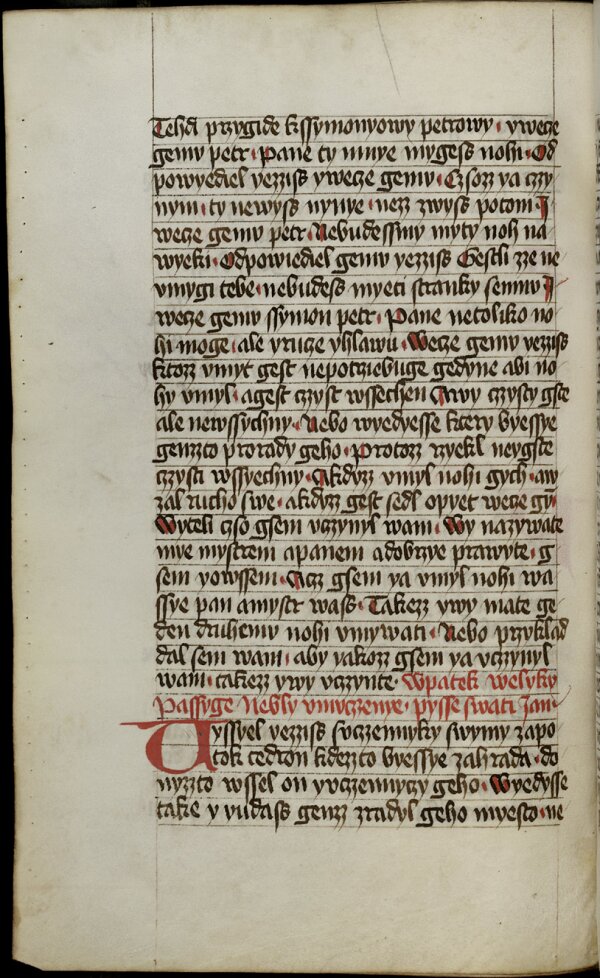 Tehda przygide kssymonyowy petrowy · ywece
gemu petr · Pane ty mnye mygess nohi · Od
powyediel yezziss ywece gemu · Czsozz ya czy
nym · ty newyss nynye · nezz zwyss potom · J
wece gemu petr · Nebudessmy myty noh na
wyeki · Odpowiediel gemu yezziss Gestli zze ne
vmygi tebe · nebudess myeti stranky semnu J
wece gemu ssymon petr · Pane netoliko no
hi moge · ale yruce yhlawu · Wece gemu yezziss
ktozz vmyt gest nepotrziebuge gedyne abi no
hy vmyl · agest czyst wssechen Awy czysty gste
ale newssychny · Nebo wyedyesse ktery byessye
genzzto prorady geho · Protozz rzekl neygste
czysti wssyechny · Akdyzz vmyl nohi gych · aw
zal rucho swe · akdyzz gest sedl opyet wece gy
Wyteli czso gsem vczynyl wam · Wy nazywate
mye mystrem apanem adobrzye prawyte · g
sem yowssem · Acz gsem ya vmyl nohi wa
ssye pan amystr wass · Takezz ywy mate ge
den druhemu nohi vmywati · Nebo przyklad
dal sem wam · aby yakozz gsem ya vczynyl
wam · takezz ywy vczynte · Wpatek welyky
Passyge Nebly vmuczenye · pysse swati Jan ·
Uyssyel yezziss suczennyky swymy zapo
tok cedron kdezto byessye zahrada · do
nyzzto wssel on yvczennyczy geho · Wyedysse
take y yudass genzz zradyl geho myesto · ne